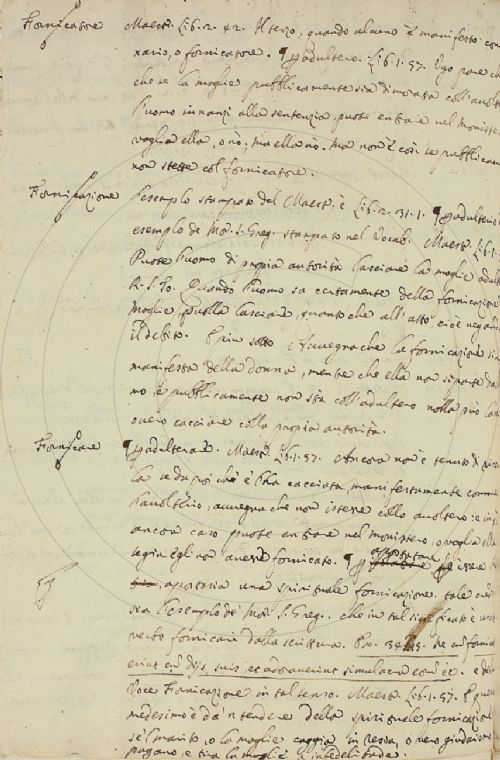 Fornicatore Maest. L.6.2.42. Il terzo, quando alcuno è manifesto con
nario, o fornicatore. ¶ p adultero. L.6.1.57. pone ca
che se la moglie pubblicamente sia dimorata coll'avol
l'uomo innanzi alla sentenzia, puote entrare nel moniste
voglia ella, o nò; ma ella nò. Ma non è così se pubblicam
non stesse col fornicatore.
Fornicazione l'esemplo stampato del Maest. è L.6.2.31.1. ¶ p adulterio
esemplo de Mor. S. Greg. stampato nel Vocab. Maest. L.6.1.
Puote l'uomo di propia autorità lasciare la moglie adult
R. S. To. Quando l'uomo sa certamente della fornicazione
moglie, puolla lasciare, quanto che all'atto cioè negand
il debito. E più sotto Avvegna che la fornicazione sia
manifesta della donna, mentre che ella non si parte da
mo e pubblicamente non stà coll'adultero nolla può las
overo cacciare colla propia autorità.
Fornicare ¶ p adulterare. Maest. L.6.1.57. Ancora non è tenuto di
la se dapoi ch'è l'ha cacciata, manifestamente comm
l'avolterio, avvegna che non istesse collo avoltero: e in
ancora caso puote entrare nel monistero, o voglia ella
egli non avesse fornicato. ¶ p apostatare
apostasia una spirituale fornicazione. tale
sia l'esemplo de Mor. S. Greg. che in tal significato è
vento fornicari dalla scrittura. Ex. 34. 15. Ne cū fornic
erint cū diis suis, et adoraverint simulacra eorū &c. e
Voce Fornicazione in tal senso. Maest. L.6.1.57. E que
medesimo è da ntendere della spirituale fornicazione
se'l marito, o la moglie caggia in resia, o vero giudaism
pagano, e sia la moglie infedelitade.